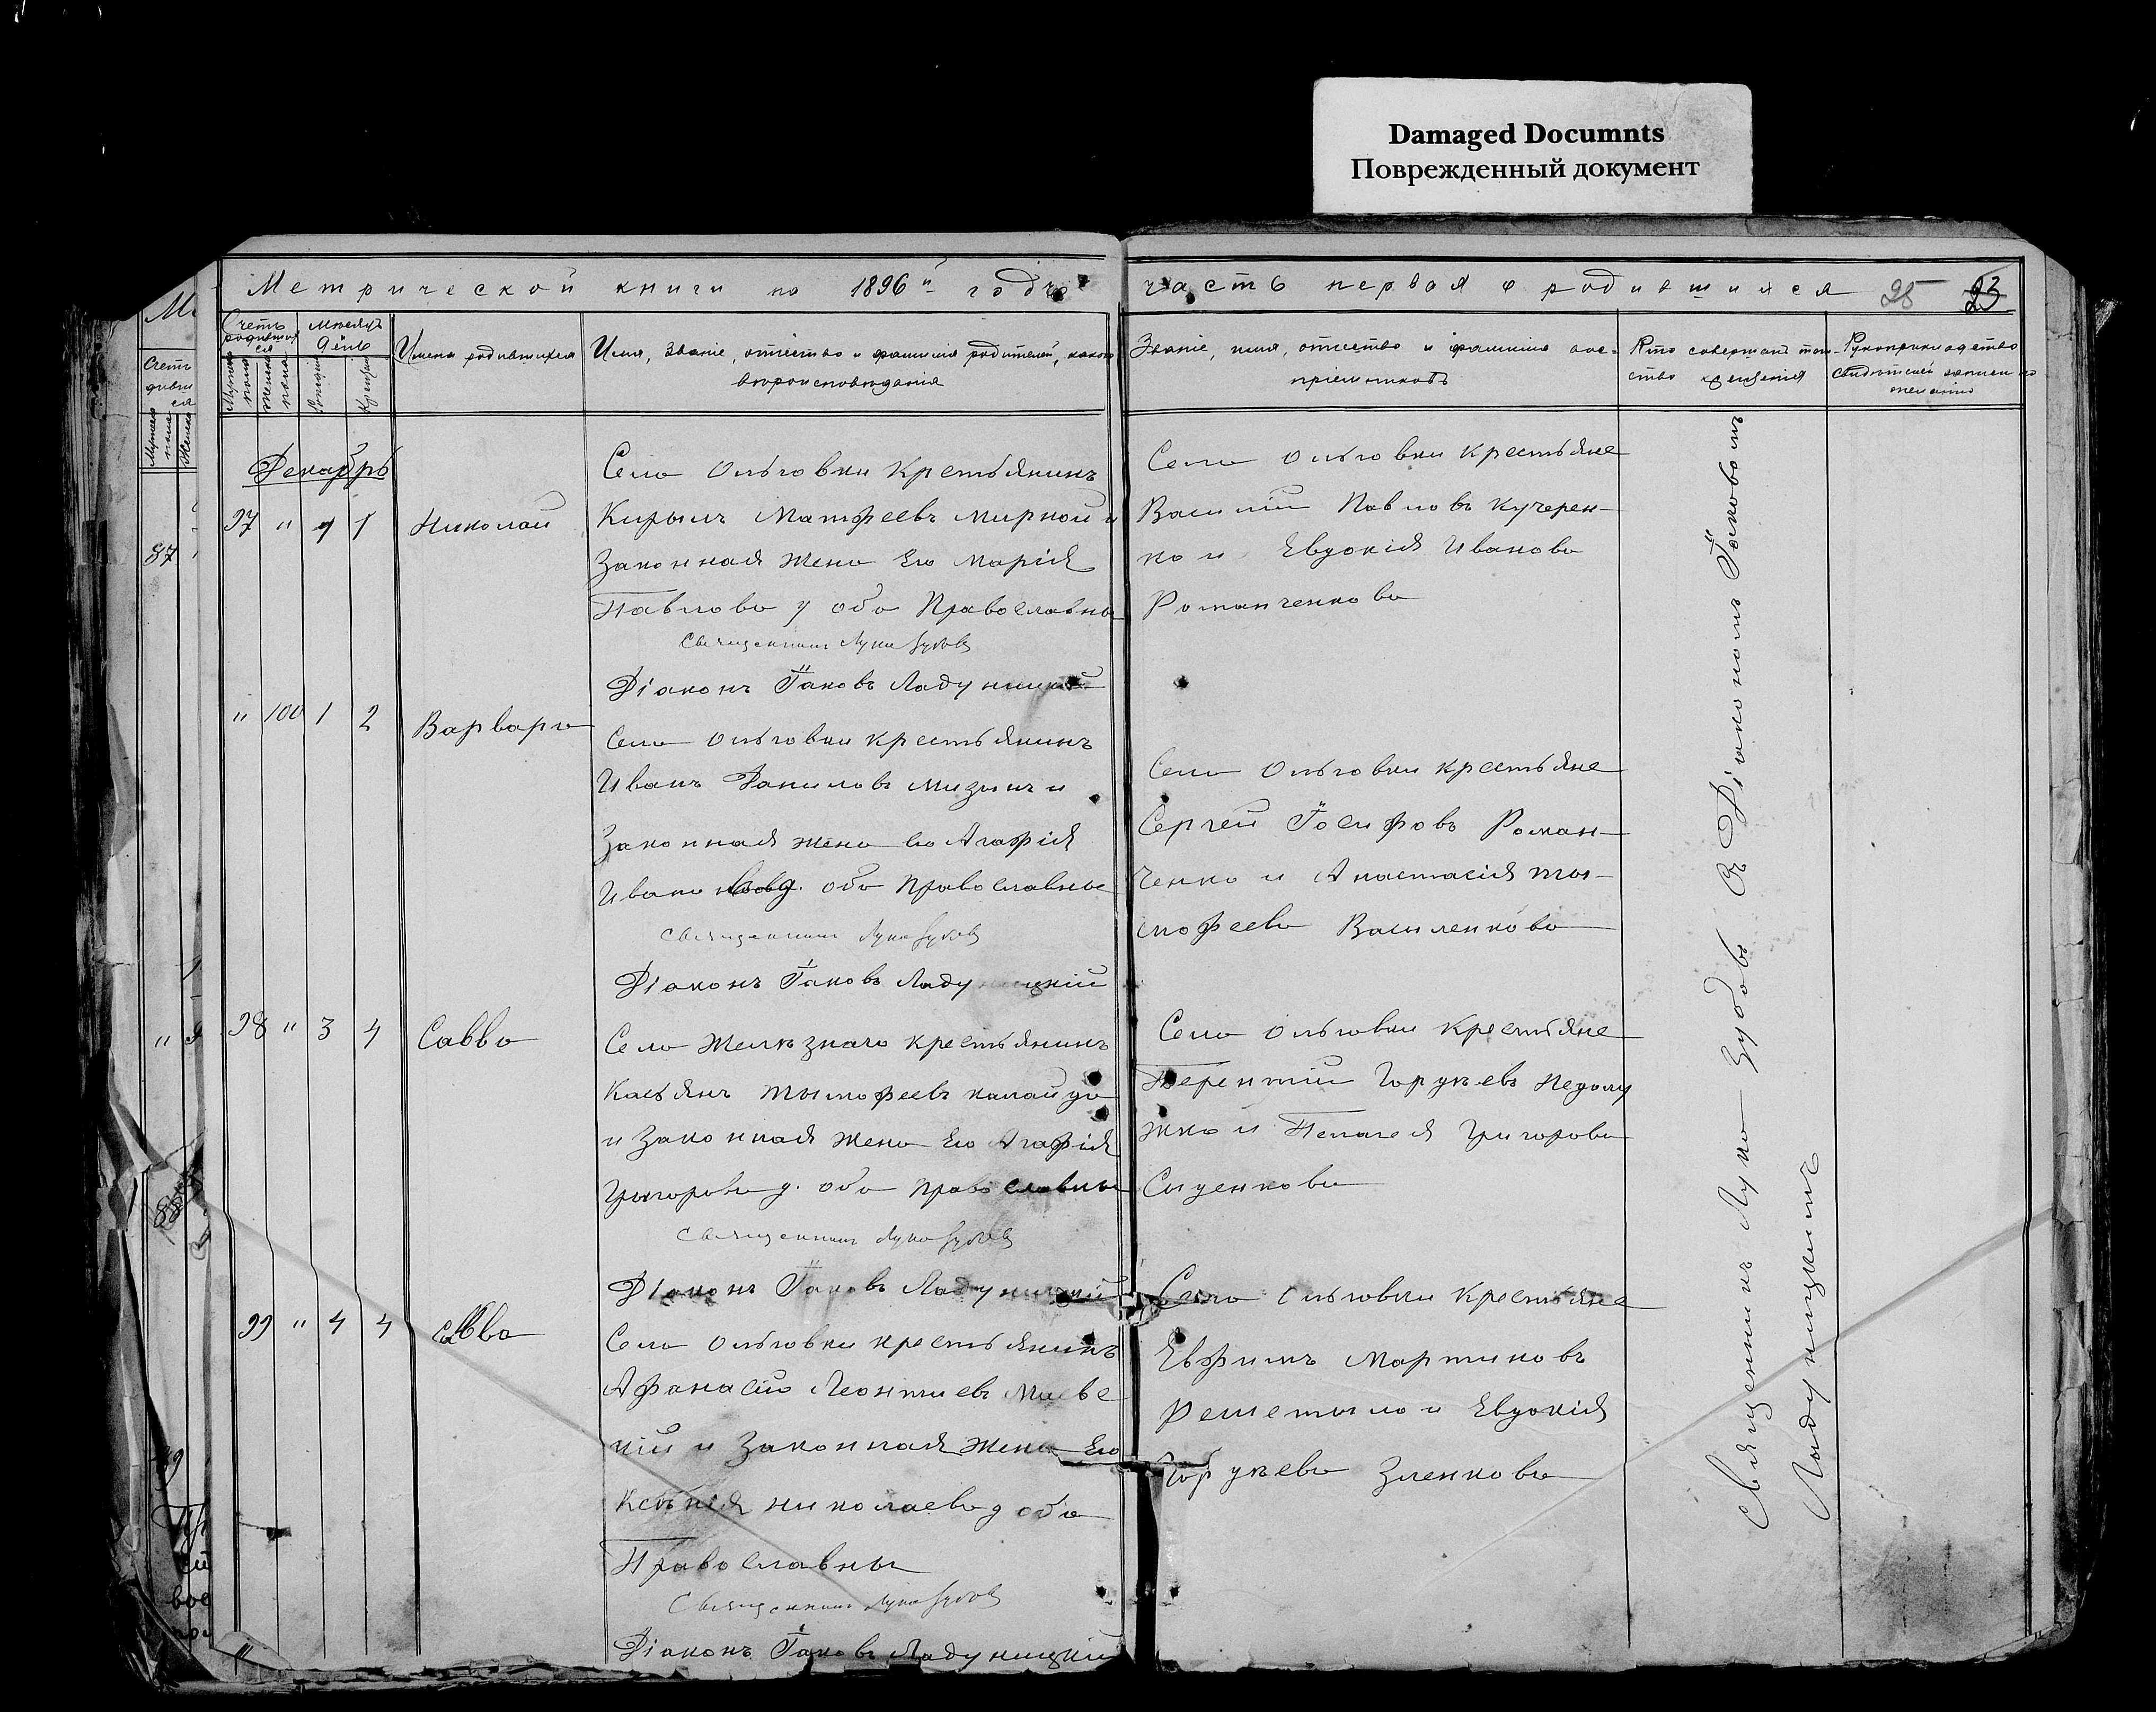 Damaged Documnts
Поврежденный документ
Метрической книги на 1896й годъ
часть первая о родившихся 25 23
Счетъ родившихся
Мѣсяцъ День
Мужеска пола
Женска пола
Рожденія
Крещенія
Имена родившихся
Имя, званіе, отчество и фамилія родителей, какого
вѣроисповѣданія
Званіе, имя, отчество и фамилія вос-
пріемниковъ
Кто совершалъ таин-
ство крещенія
Рукоприкладство
свидѣтелей записи по
желанію
Декабрь
97 " 1 1 Николай
Села Ольговки Крестьянинъ
Кирылъ Матфеевъ Мирной и
Законная жена Его Марія
Павлова у оба Православны
Священникъ Лука Зубовъ
Діаконъ Іаковъ Ладуницкій
Села Ольговки Крестьяне
Василій Павловъ Кучерен-
ко и Евдокія Иванова
Романченкова
" 100 1 2 Варвара
Села Ольговки крестьянинъ
Иванъ Даниловъ Мизинъ и
Законная жена Его Агафія
Ивано д. оба Православные
Священникъ Лука Зубовъ
Діаконъ Іаковъ Ладуницкій
Села Ольговки крестьяне
Сергей Іосифовъ Роман-
ченко и Анастасія Ты-
мофеева Василенкова
98 " 3 4 Савва
Села Желѣзнаго крестьянинъ
Касьянъ Тымофеевъ Калайда
и Законная жена Его Агафія
Григорова д. оба Православны
Священникъ Лука Зубовъ
Діаконъ Іаковъ Ладуницкій
Села Ольговки Крестьяне
Терентій Гордѣевъ Недолу
жко и Пелагея Григорова
Сиденкова
99 " 4 4 Савва
Села Ольговки крестьянинъ
Афанасій Леонтиевъ Миеве
кій и Законная Жена Его
Ксенія Николаева д оба
Православны
Священникъ Лука Зубовъ
Діаконъ Іаковъ Ладуницкій
Села Ольговки Крестьяне
Евфимъ Мартиновъ
Решетыло и Евдокія
Гордѣева Зленкова
Священникъ Лука Зубовъ Съ Діакономъ Іаковомъ
Ладуницкимъ
87